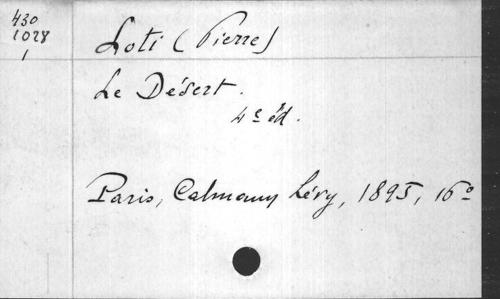 430
1028
1
Loti (Pierre)
Le Désert.
4e éd.
Paris, Calmann Lévy, 1895, 16o